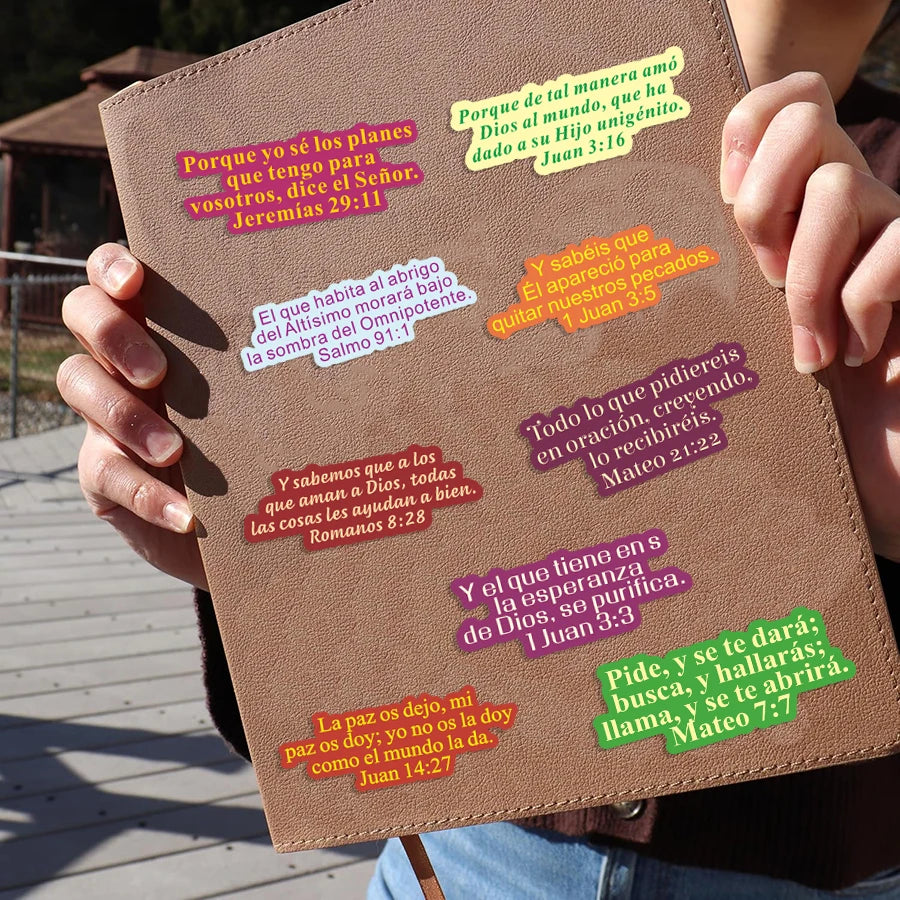 Porque yo sé los planes
que tengo para
vosotros, dice el Señor.
Jeremías 29:11
Porque de tal manera amó
Dios al mundo, que ha
dado a su Hijo unigénito.
Juan 3:16
El que habita al abrigo
del Altísimo morará bajo
la sombra del Omnipotente.
Salmo 91:1
Y sabéis que
Él apareció para
quitar nuestros pecados.
1 Juan 3:5
Todo lo que pidiereis
en oración, creyendo,
lo recibiréis.
Mateo 21:22
Y sabemos que a los
que aman a Dios, todas
las cosas les ayudan a bien.
Romanos 8:28
Y el que tiene en s
la esperanza
de Dios, se purifica.
1 Juan 3:3
Pide, y se te dará;
busca, y hallarás;
llama, y se te abrirá.
Mateo 7:7
La paz os dejo, mi
paz os doy; yo no os la doy
como el mundo la da.
Juan 14:27